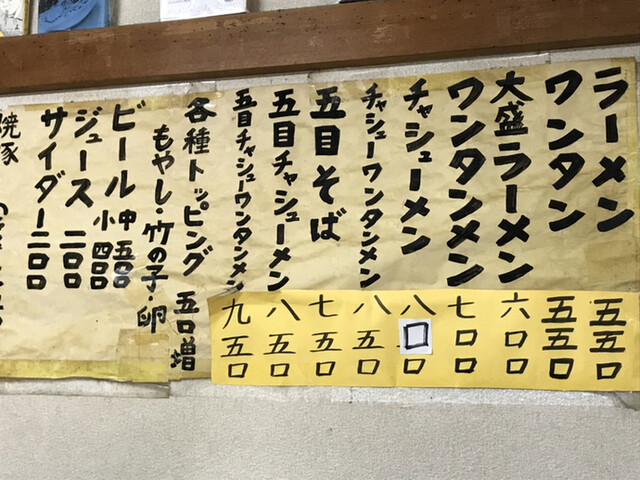 ラーメン 五五〇
ワンタン 五五〇
大盛ラーメン 六〇〇
ワンタンメン 七〇〇
チャシューメン 八〇〇
チャシューワンタンメン 八五〇
五目そば 七五〇
五目チャシューメン 八五〇
五目チャシューワンタンメン 九五〇
各種トッピング 五〇増
もやし・竹の子・卵
ビール 中 五〇〇
小 四〇〇
ジュース 二〇〇
サイダー 二〇〇
焼豚